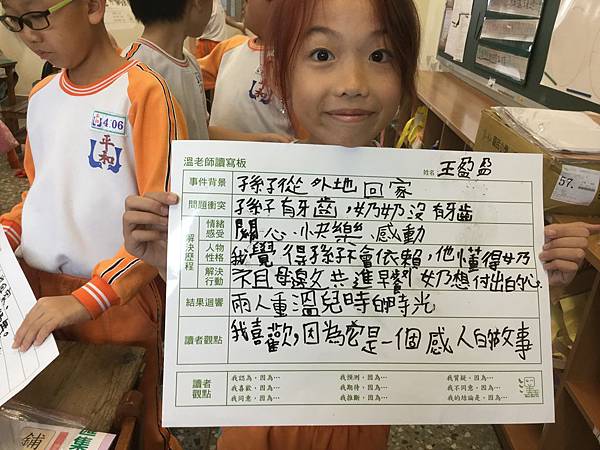 溫老師讀寫板
姓名：王盈盈
事件背景 孫子從外地回家
問題衝突 孫子有牙齒，奶奶沒有牙齒
解決歷程
情緒感受 開心、快樂、感動
人物性格 我覺得孫子會依賴，他懂得奶
解決行動 不且母邊文共進早餐 奶想付出白的心.
結果迴響 兩人重溫兒時的時光
讀者觀點 我喜歡，因為它是一個感人的故事
讀者觀點
我認為，因為… 我預測，因為… 我質疑，因為…
我喜歡，因為… 我期待，因為… 我不同意，因為…
我同意，因為… 我推斷，因為… 我的結論是，因為…
406
平和
57.